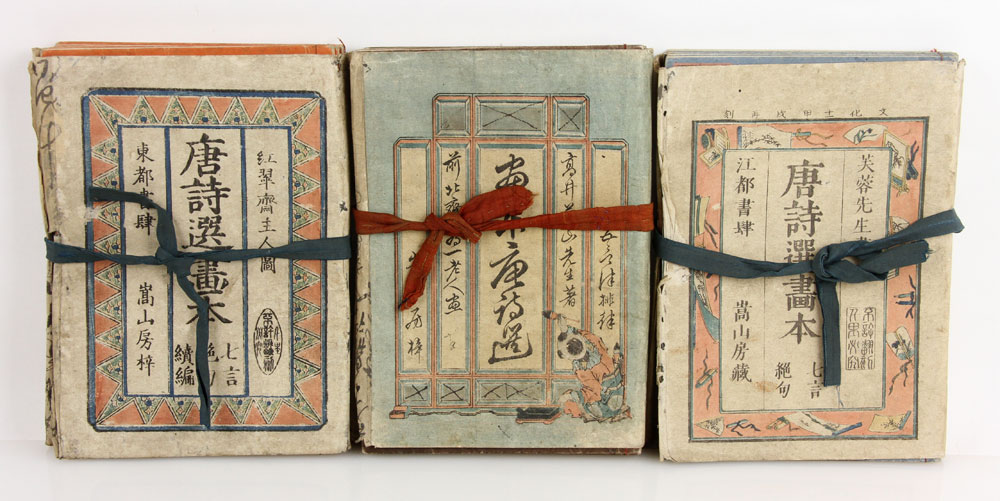 紅翠齋主人圖
唐詩選畫本
七言
絶句
續編
東都書肆
嵩山房梓
五言律排律
高井蘭山先生著
畫本唐詩選
前北齋爲一老人畫
文化十一甲戌再刻
芙蓉先生畫
唐詩選畫本
七言
絶句
江都書肆
嵩山房藏